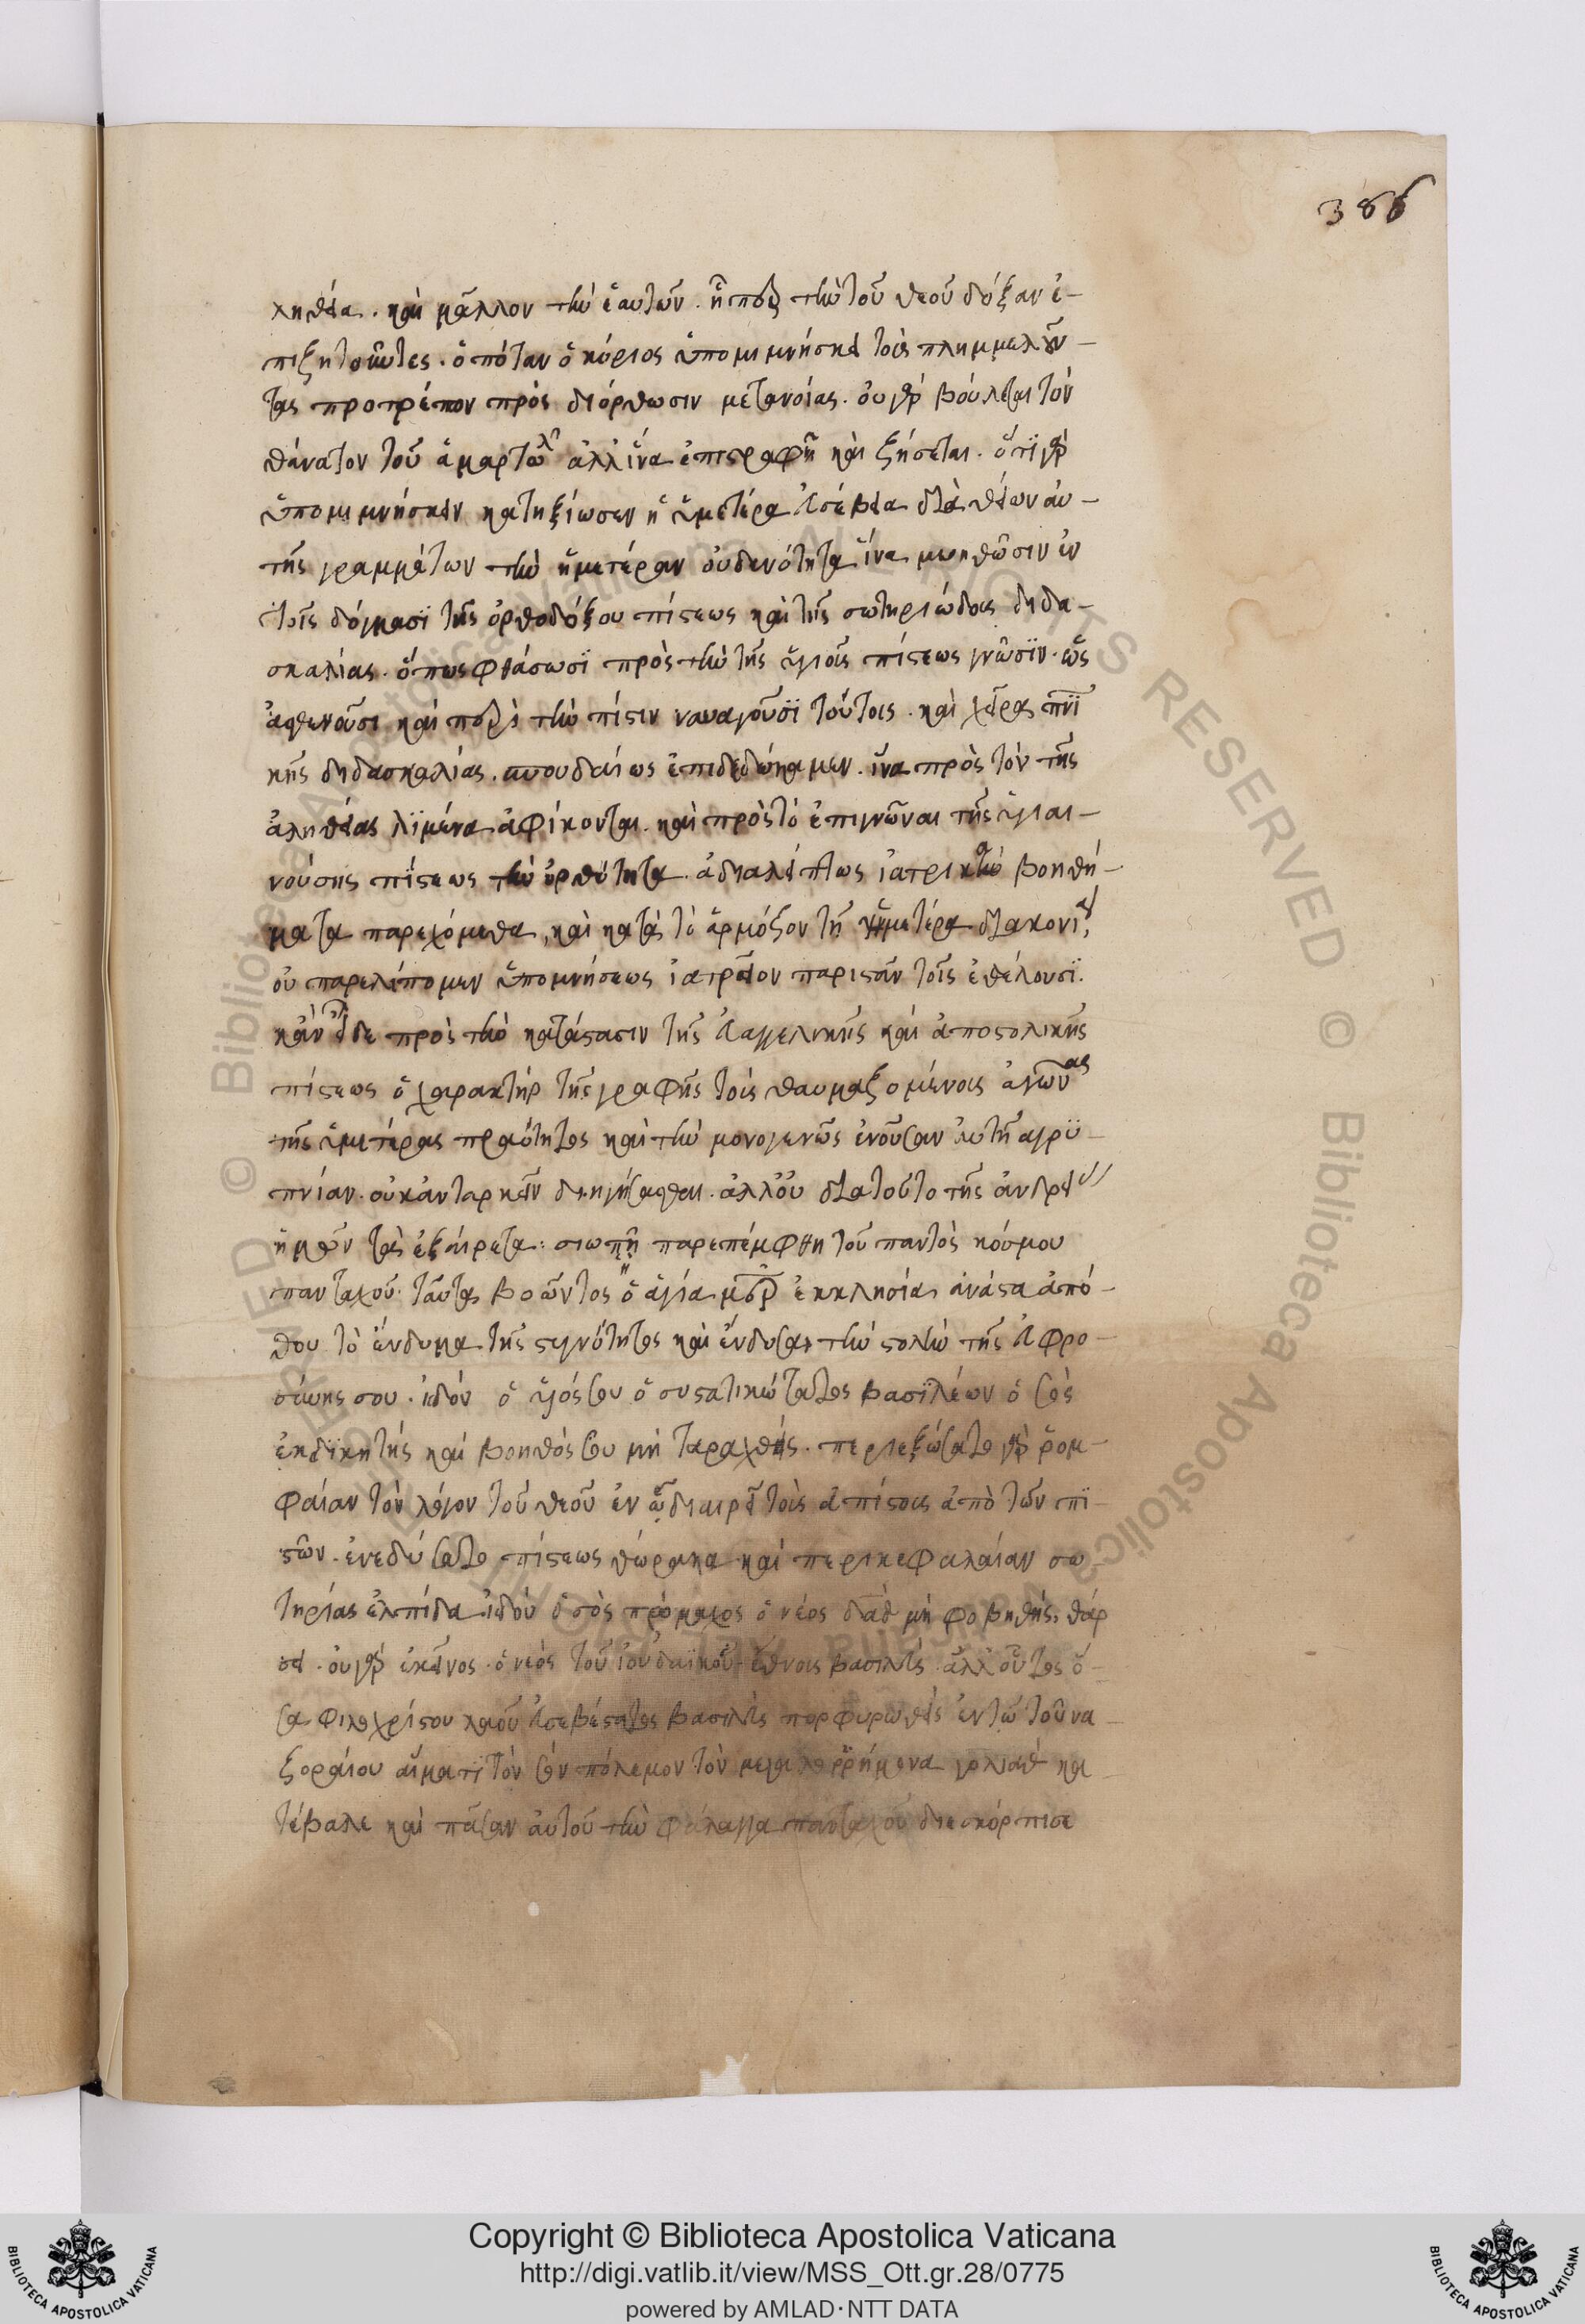 386
ληθεία. καὶ μᾶλλον τὴν ἑαυτῶν. ἤπερ τὴν τοῦ θεοῦ δόξαν ἐ-
πιζητοῦντες. ὁπόταν ὁ κύριος ὑπομιμνήσκει τοὺς πλημμελοῦν-
τας προτρέπον πρὸς διόρθωσιν μετανοίας. οὐ γὰρ βούλεται τὸν
θάνατον τοῦ ἁμαρτωλοῦ ἀλλ' ἵνα ἐπιστραφῆ καὶ ζήσεται. ὅτι γὰρ
ὑπομιμνήσκειν κατηξίωσεν ἡ ὑμετέρα εὐσέβεια διὰ θείων αὐ-
τῆς γραμμάτων τὴν ἡμετέραν οὐδενότητα ἵνα μυηθῶσιν ἐν
τοῖς δόγμασϊ τῆς ὀρθοδόξου πίστεως καὶ τῆς σωτηριώδους διδα-
σκαλίας. ὅπως φθάσωσϊ πρὸς τὴν τῆς ὑγιοῦς πίστεως γνῶσϊν. ὡς
ἀσθενοῦσι καὶ περὶ τὴν πίστιν ναυαγοῦσϊ τούτοις. καὶ χεῖρας πνϊ
κῆς διδασκαλίας. σπουδαίως ἐπιδεδώκαμεν. ἵνα πρὸς τὸν τῆς
ἀληθείας λϊμένα ἀφίκονται. καὶ πρὸς τὸ ἐπιγνῶναι τῆς ὑγιαι-
νούσης πίστεως τὴν ὀρθότητα. ἀδιαλείπτως ἰατρικὰ βοηθή-
ματα παρεχόμεθα, καὶ κατὰ τὸ ἁρμόζον τῆ ἡμετέρα διακονία,
οὐ παρελείπομεν ὑπομνήσεως ἰατρεῖον παριστᾶν τοῖς ἐθέλουσϊ.
κἂν εἰ δὲ πρὸς τὴν κατάστασιν τῆς εὐαγγελικῆς καὶ ἀποστολικῆς
πίστεως ὁ χαρακτὴρ τῆς γραφῆς τοὺς θαυμαζομένους ἀγῶνας
τῆς ὑμετέρας πραότητος καὶ τὴν μονογενῶς ἐνοῦσαν αὐτῆ ἀγρυ-
πνίαν. οὐκ ἀνταρκεῖν διηγήσασθαι. ἀλλ' οὐ διὰ τοῦτο τῆς ἀνδρεί
ἡμῶν τὰ ἐξαίρετα: σιωπῆ παρεπέμφθη τοῦ παντὸς κόσμου
πανταχοῦ. ταῦτα βοῶντος ὁ ἁγία μηρ ἐκκλησία ἀνάστα ἀπό-
θου τὸ ἔνδυμα τῆς στυγνότητος καὶ ἔνδυσαι τὴν στολὴν τῆς εὐφρο-
σύνης σου. ἰδοὺ ὁ υἱός σου ὁ συστατικώτατος βασιλέων ὁ σὸς
ἐκδϊκητής καὶ βοηθός σου μὴ ταραχθεὶς. περιεζώσατο γὰρ ῥομ-
φαίαν τὸν λόγον τοῦ θεοῦ ἐν ᾧ διαιρεῖ τοὺς ἀπίστους ἀπὸ τῶν πϊ-
στῶν. ἐνεδύσατο πίστεως θώρακα καὶ περικεφαλαίαν σω
τηρίας ἐλπίδα ἰδοὺ ὁ σὸς πρόμαχος ὁ νέος δαδ μὴ φοβηθῆς, θάρ
σει. οὐ γὰρ ἐκεῖνος. ὁ νεὸς τοῦ ἰουδαϊκοῦ ἔθνους βασιλεὺς. ἀλλ' οὗτος ὅ-
σα φιλοχρίστου λαοῦ εὐσεβέστατος βασιλεὺς πορφυρωθεὶς ἐν τῶ τοῦ να-
ζοραίου αἵματϊ τὸν σὸν πόλεμον τὸν μεγαλοῤῥήμονα γολιαθ κα-
τέβαλε καὶ πᾶσαν αὐτοῦ τὴν φάλαγγα πανταχοῦ διεσκόρπισε
© Biblioteca Apostolica Vaticana ALL RIGHTS RESERVED
Copyright © Biblioteca Apostolica Vaticana
http://digi.vatlib.it/view/MSS_Ott.gr.28/0775
powered by AMLAD·NTT DATA
BIBLIOTECA APOSTOLICA VATICANA
BIBLIOTECA APOSTOLICA VATICANA